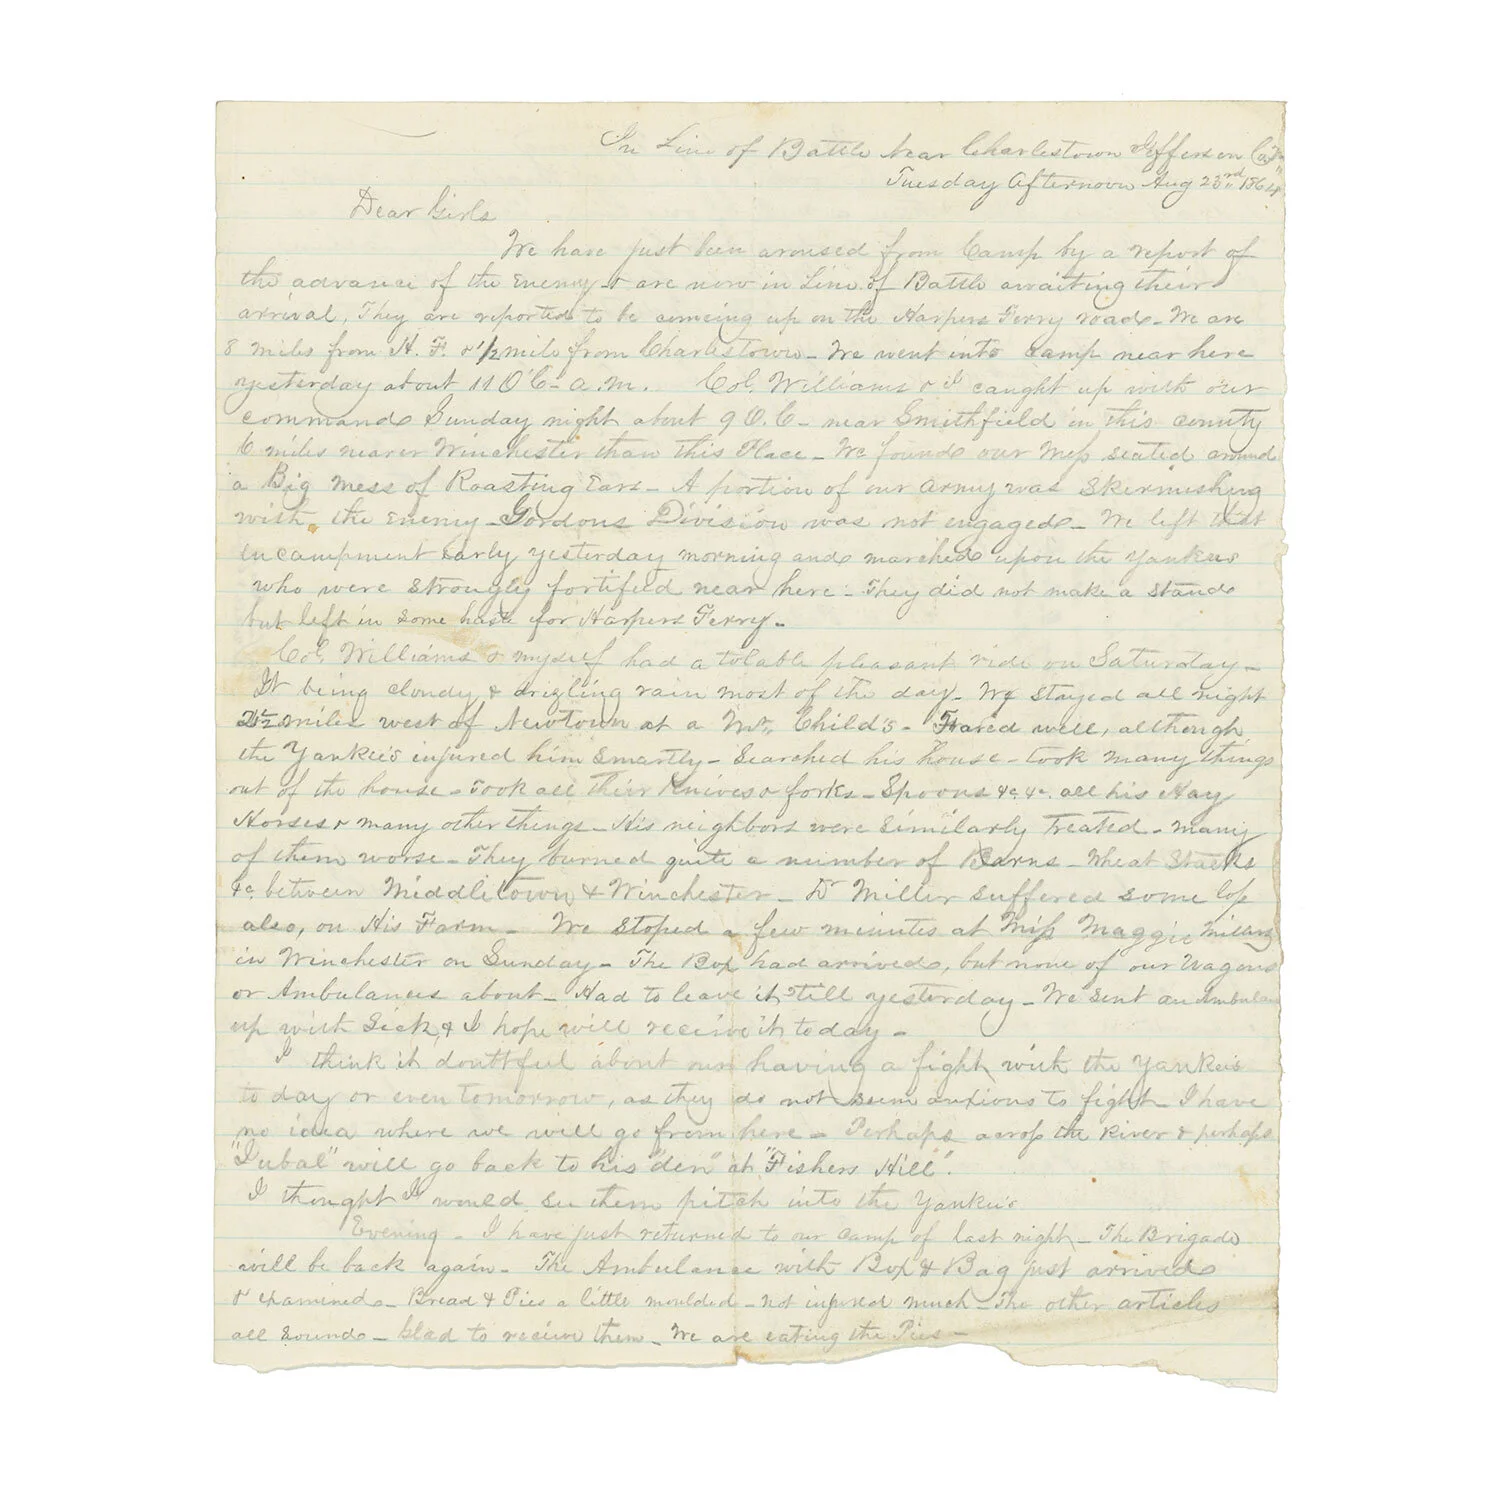 In Line of Battle near Charlestown Jefferson Co
Tuesday Afternoon Aug 23rd 1864
Dear Girls
We have just been aroused from Camp by a report of
the advance of the Enemy & are now in Line of Battle awaiting their
arrival, They are reported to be comeing up on the Harpers Ferry road - We are
8 miles from H. F. & 1/2 mile from Charlestown - We went into camp near here
yesterday about 11 O'C - a.m. Col. Williams & I caught up with our
command Sunday night about 9 O.C - near Smithfield in this county
6 miles nearer Winchester than this Place - We found our Mess seated around
a Big Mess of Roasting Ears - A portion of our army was Skirmishing
with the Enemy - Gordons Division was not engaged - We left that
encampment early yesterday morning and marched upon the Yankees
who were strongly fortified near here - They did not make a stand
but left in some haste for Harpers Ferry -
Col. Williams & myself had a tolable pleasant ride on Saturday -
It being cloudy & drizling rain most of the day - We stayed all night
2 1/2 miles west of Newtown at a Mr. Child's - Fared well, although
the Yankie's injured him smartly - Searched his house - took many things
out of the house - Took all their Knives & forks - Spoons &c. &c. all his Hay
Horses & many other things - His neighbors were similarly treated - many
of them worse - They burned quite a number of Barns - Wheat Stacks
&c. between Middletown & Winchester - Dr Miller suffered some loss
also, on His Farm - We stoped a few minutes at Miss Maggie Millers
in Winchester on Sunday - The Box had arrived, but none of our Wagons
or Ambulances about - Had to leave it till yesterday - We sent an Ambulan
up with Sick, & I hope will receive it today -
I think it doubtful about our having a fight with the Yankeis
to day or even tomorrow, as they do not seem anxious to fight - I have
no idea where we will go from here - Perhaps across the River & perhaps
"Jubal" will go back to his "den" at "Fishers Hill".
I thought I would see them pitch into the Yankie's
Evening - I have just returned to our camp of last night - The Brigade
will be back again - The Ambulance with Box & Bag just arrived
& examined - Bread & Pies a little moulded - not injured much - The other articles
all sound - Glad to receive them - We are eating the Pies -